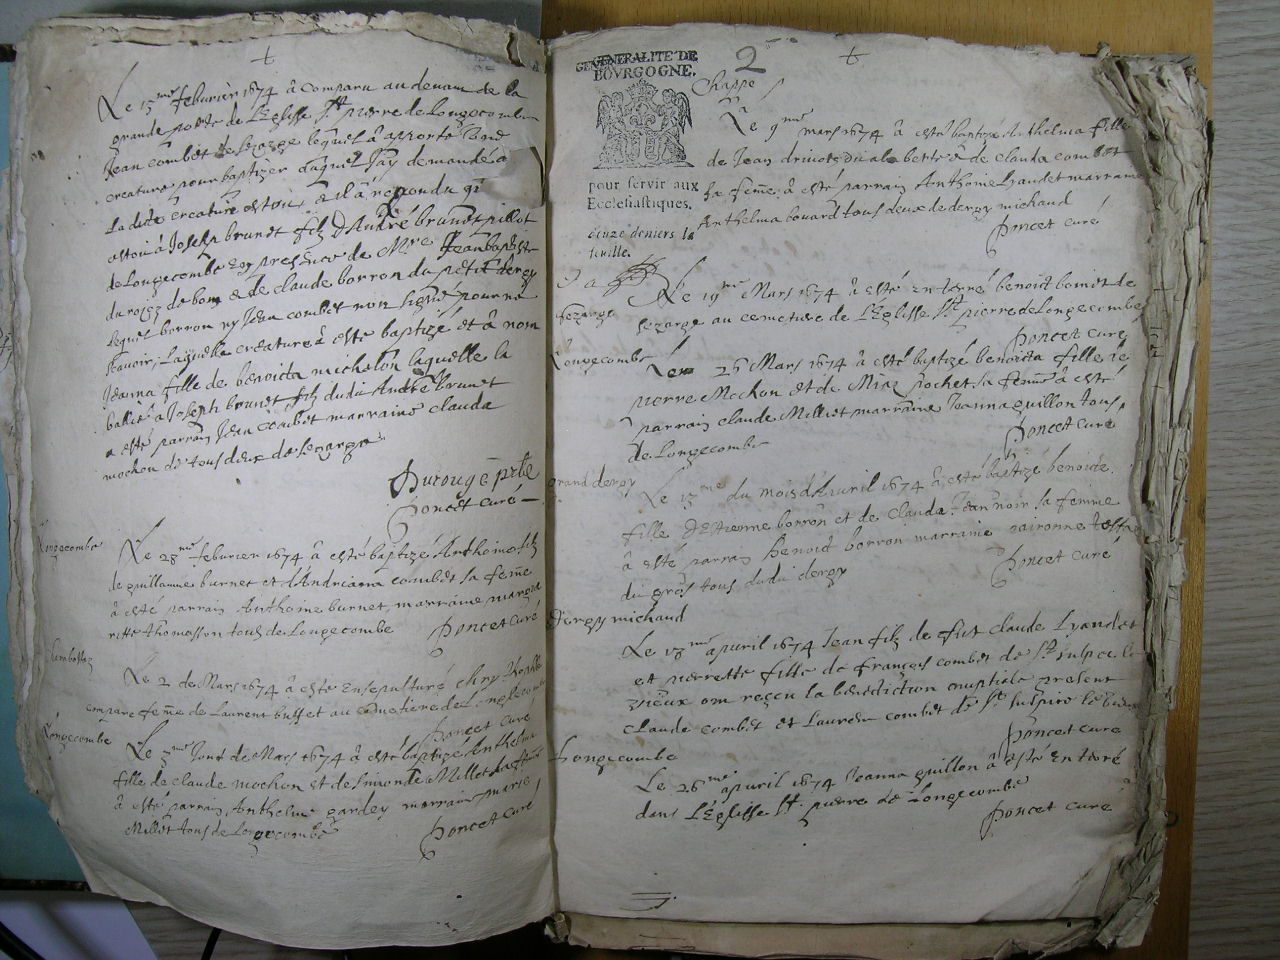 Le 15me febvrier 1674 â comparu au devant de la
grande porte de L'Eglisse St pierre de Longecombe
Jean combet de Lezarge lequel â apporté une
creature pour baptizer duquel Jay demandé â
La dite creature estoit & il â respondu qu
estoit â Joseph brunet filz d'André brunet pillot
de Longecombe En presence de Mre Jean baptiste
de claude borron du petit deroy
lequel borron ny Jean combet non signé pour ne
scavoir, Laquelle creature â esté baptizé et â nom
Jeanna fille de benoicta michelon laquelle la
baillé â Joseph brunet filz dudit André brunet
a esté parrain Jean combet marraine clauda
mochon de tous deux de Lezarge
Poncet curé
Longecombe
Le 28me febvrier 1674 â esté baptizé Anthoine filz
de guillaume burnet et d'Andrianna combet sa feme
â esté parrain Anthoine burnet, marraine margue
ritte thomasson tous de Longecombe
Poncet curé
Le 2 de Mars 1674 â esté Ensepulturé
compare feme de Laurent buffet au cemetiere de Longecombe
Poncet curé
Longecombe
Le 3me Jour de Mars 1674 â esté baptizé Anthelma
fille de claude mochon et de simonde Millet sa feme
â esté parrain Anthelme gardey marraine marie
Millet tous de Longecombe
Poncet curé
GENERALITE DE
BOVRGOGNE.
2
pour servir aux
Ecclesiastiques,
douze deniers la
feuille.
Chappe
Le 9me mars 1674 â esté baptizé Anthelma fille
de Jean drivot & de clauda combet
sa feme â esté parrain Anthoine marraine
Anthelma bouard tous deux de deroy michaud
Poncet curé
Lezarge
Le 19me Mars 1674 â esté enterré benoict
Lezarge au cemetiere de L'Eglisse St pierre de Longecombe
Poncet curé
Longecombe
Le 26 Mars 1674 â esté baptizé benoicta fille de
pierre Mochon et de Miaz pochet sa feme â esté
parrain claude Milliet marraine Jeanna guillon tous
de Longecombe
Poncet curé
grand deroy
Le 13me du mois d'Avril 1674 â esté baptizé benoite
fille d'Etienne borron et de clauda Jean noir sa femme
â esté parrain benoid borron marraine
du gros tous dudit deroy
Poncet curé
deroy michaud
Le 18me apvril 1674 Jean filz de fut claude Lyandet
et pierrette fille de françois combet de St sulpice le
vieux ont reçeu la benediction nuptiale present
claude combet et Laurens combet de St sulpice le vieux
Poncet curé
Longecombe
Le 26me apvril 1674 Jeanna guillon â esté Enterré
dans L'Eglisse St pierre de Longecombe
Poncet curé